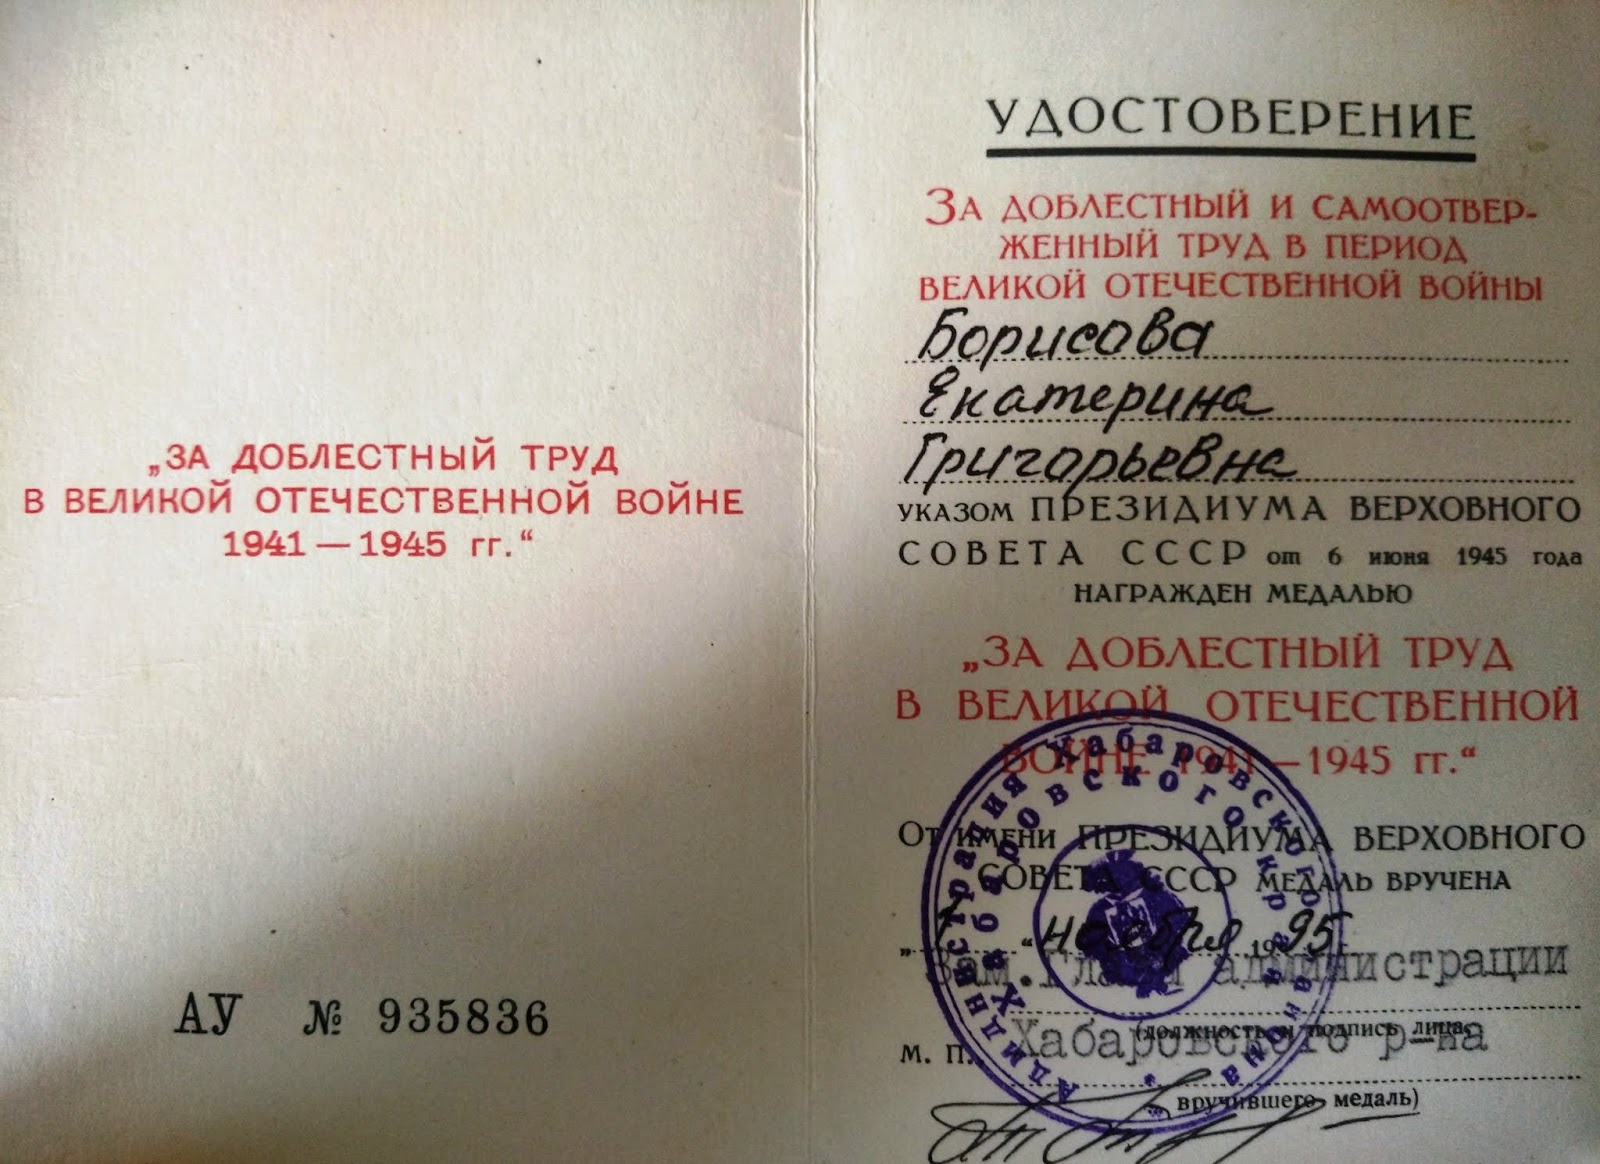 „ЗА ДОБЛЕСТНЫЙ ТРУД
В ВЕЛИКОЙ ОТЕЧЕСТВЕННОЙ ВОЙНЕ
1941 — 1945 гг.“
АУ № 935836
УДОСТОВЕРЕНИЕ
ЗА ДОБЛЕСТНЫЙ И САМООТВЕР-
ЖЕННЫЙ ТРУД В ПЕРИОД
ВЕЛИКОЙ ОТЕЧЕСТВЕННОЙ ВОЙНЫ
Борисова
Екатерина
Григорьевна
УКАЗОМ ПРЕЗИДИУМА ВЕРХОВНОГО
СОВЕТА СССР от 6 июня 1945 года
НАГРАЖДЕН МЕДАЛЬЮ
„ЗА ДОБЛЕСТНЫЙ ТРУД
В ВЕЛИКОЙ ОТЕЧЕСТВЕННОЙ
ВОЙНЕ 1941 — 1945 гг.“
ОТ ИМЕНИ ПРЕЗИДИУМА ВЕРХОВНОГО
СОВЕТА СССР МЕДАЛЬ ВРУЧЕНА
ноября 1995
Зам. Главы администрации
(должность и подпись лица,
М. П. Хабаровского р-на
вручившего медаль)
Администрация Хабаровского района
Хабаровского края